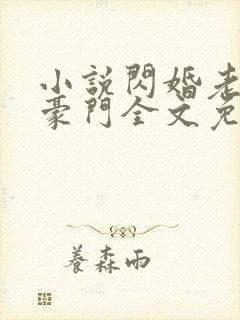 小說閃婚老
豪門全文免
養森雨